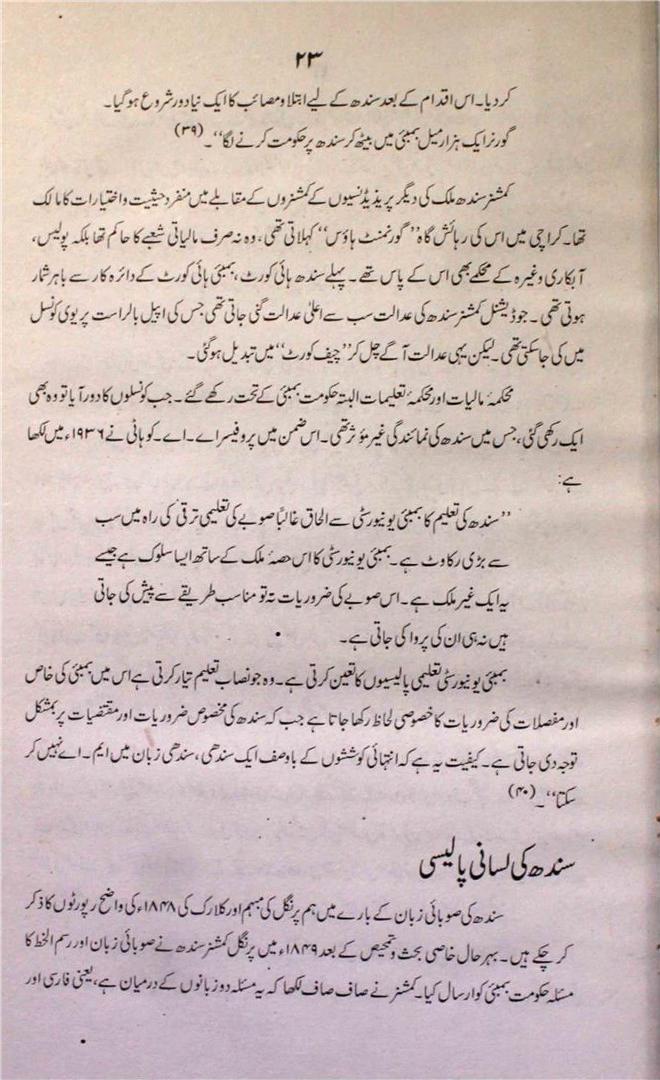 ۲۳
کر دیا۔ اس اقدام کے بعد سندھ کے لیے ابتلا و مصائب کا ایک نیا دور شروع ہو گیا۔
گورنر ایک ہزار میل بمبئی میں بیٹھ کر سندھ پر حکومت کرنے لگا‘‘۔ (۳۹)
کمشنر سندھ ملک کی دیگر پریذیڈنسیوں کے کمشنروں کے مقابلے میں منفرد حیثیت و اختیارات کا مالک
تھا۔ کراچی میں اس کی رہائش گاہ ’’گورنمنٹ ہاؤس‘‘ کہلاتی تھی، وہ نہ صرف مالیاتی شعبے کا حاکم تھا بلکہ پولیس،
آبکاری وغیرہ کے محکمے بھی اس کے پاس تھے۔ پہلے سندھ ہائی کورٹ، بمبئی ہائی کورٹ کے دائرہ کار سے باہر شمار
ہوتی تھی۔ جوڈیشنل کمشنر سندھ کی عدالت سب سے اعلیٰ عدالت گنی جاتی تھی جس کی اپیل بالراست پریوی کونسل
میں کی جا سکتی تھی۔ لیکن یہی عدالت آگے چل کر ’’چیف کورٹ‘‘ میں تبدیل ہو گئی۔
محکمۂ مالیات اور محکمۂ تعلیمات البتہ حکومت بمبئی کے تحت رکھے گئے۔ جب کونسلوں کا دور آیا تو وہ بھی
ایک رکھی گئی، جس میں سندھ کی نمائندگی غیر مؤثر تھی۔ اس ضمن میں پروفیسر اے۔ اے۔ کوہاٹی نے ۱۹۳۶ء میں لکھا
ہے:
’’سندھ کی تعلیم کا بمبئی یونیورسٹی سے الحاق غالبًا صوبے کی تعلیمی ترقی کی راہ میں سب
سے بڑی رکاوٹ ہے۔ بمبئی یونیورسٹی کا اس حصۂ ملک کے ساتھ ایسا سلوک ہے جیسے
یہ ایک غیر ملک ہے۔ اس صوبے کی ضروریات نہ تو مناسب طریقے سے پیش کی جاتی
ہیں نہ ہی ان کی پروا کی جاتی ہے۔
بمبئی یونیورسٹی تعلیمی پالیسیوں کا تعین کرتی ہے۔ وہ جو نصاب تعلیم تیار کرتی ہے اس میں بمبئی کی خاص
اور مفصلات کی ضروریات کا خصوصی لحاظ رکھا جاتا ہے جب کہ سندھ کی مخصوص ضروریات اور مقتضیات پر بمشکل
توجہ دی جاتی ہے۔ کیفیت یہ ہے کہ انتہائی کوششوں کے باوصف ایک سندھی، سندھی زبان میں ایم۔ اے نہیں کر
سکتا‘‘۔ (۴۰)
سندھ کی لسانی پالیسی
سندھ کی صوبائی زبان کے بارے میں ہم پرنگل کی مبہم اور کلارک کی ۱۸۴۸ء کی واضح رپورٹوں کا ذکر
کر چکے ہیں۔ بہر حال خاصی بحث و تمحیص کے بعد ۱۸۴۹ء میں پرنگل کمشنر سندھ نے صوبائی زبان اور رسم الخط کا
مسئلہ حکومت بمبئی کو ارسال کیا۔ کمشنر نے صاف صاف لکھا کہ یہ مسئلہ دو زبانوں کے درمیان ہے، یعنی فارسی اور